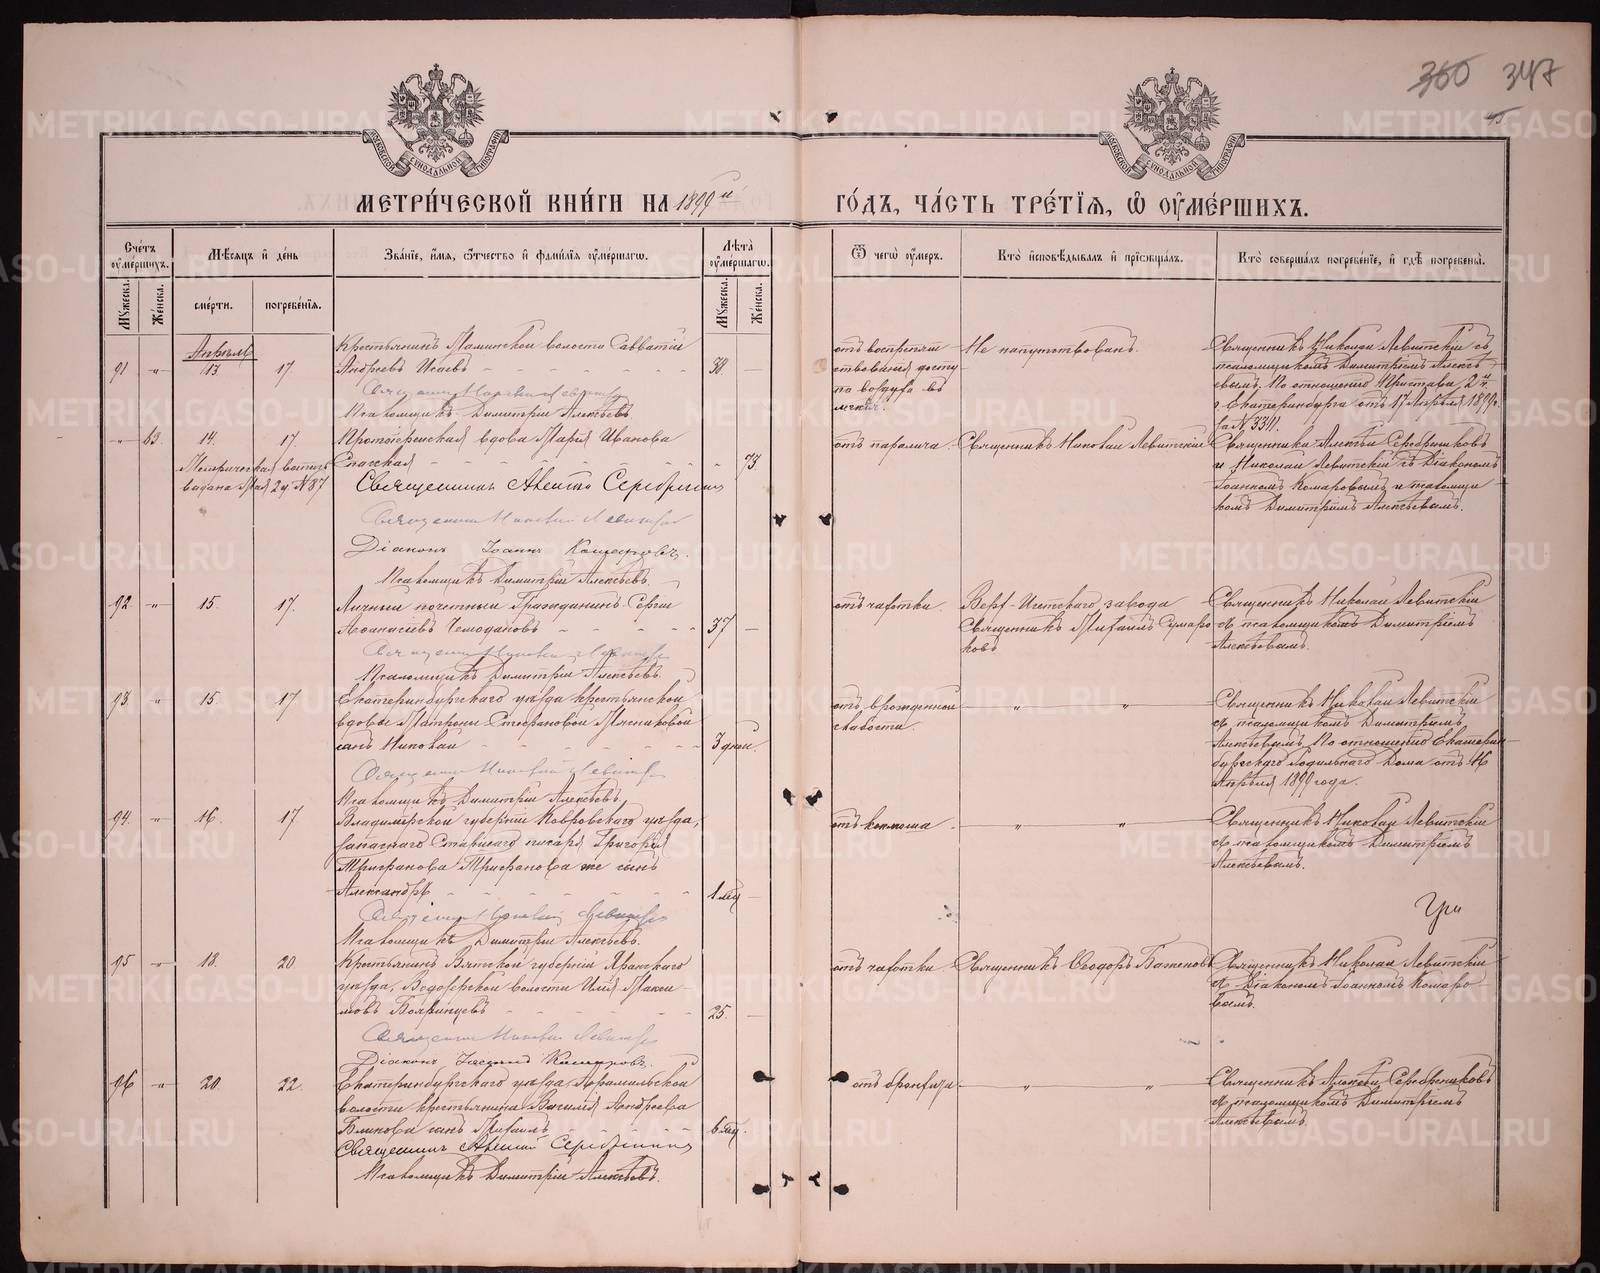 360 347
МЕТРИ́ЧЕСКОЙ КНИ́ГИ НА 1899й
ГО́ДЪ, ЧА́СТЬ ТРЕ́ТІѦ, Ѽ ОУМЕ́РШИХЪ.
Сче́тъ оумершихъ.
Мѣсѧцъ и҆ де́нь
Зва́нїе, и҆́мѧ, ѻ҆́тчество и҆ фами́лїѧ оумершагѡ.
Лѣта̀ оумершагѡ.
Ѿ чегѡ̀ оу́меръ.
Кто̀ и҆сповѣ́дывалъ и҆ прїѡбща́лъ.
Кто̀ соверша́лъ погребе́нїе, и҆ гдѣ̀ погребены̀.
Мꙋ́жеска. Же́нска.
сме́рти. погребе́нїѧ.
Мꙋ́жеска. Же́нска.
Апрѣль
91 „ 13 17
Крестьянинъ Маминской волости Савватій
Андреевъ Исаевъ
38.
Священникъ Николай Левитскій
Псаломщикъ Димитрій Алексѣевъ.
отъ воспрепят
ствованія досту
па воздуха въ
легкія.
Не напутствованъ.
Священникъ Николай Левитскій съ
псаломщикомъ Димитріемъ Алексѣ
евымъ. По отношенію Пристава 2 ч.
г. Екатеринбурга отъ 17 Апрѣля 1899 г.
за № 3311.
„ 63. 14. 17.
Протоіерейская вдова Марія Иванова
Спасская
73.
Метрическая выпись
выдана Мая 2 д № 87
Священникъ Алексій Серебренников
Священникъ Николай Левитскій
Діаконъ Іоаннъ Комаровъ.
Псаломщикъ Димитрій Алексѣевъ.
отъ паралича.
Священникъ Николай Левитскій
Священники: Алексѣй Серебренниковъ
и Николай Левитскій съ Діакономъ
Іоанномъ Комаровымъ и псаломщи
комъ Димитріемъ Алексѣевымъ.
92 „ 15. 17.
Личный почетный Гражданинъ Сергій
Аѳанасіевъ Чемодановъ
37
Священникъ Николай Левитскій
Псаломщикъ Димитрій Алексѣевъ.
отъ чахотки.
Верх-Исетскаго завода
Священникъ Михаилъ Сумаро
ковъ
Священникъ Николай Левитскій
съ псаломщикомъ Димитріемъ
Алексѣевымъ.
93. „ 15. 17
Екатеринбургскаго уѣзда крестьянской
вдовы Матроны Стефановой Мясниковой
сынъ Николай
3 дней.
Священникъ Николай Левитскій
Псаломщикъ Димитрій Алексѣевъ
отъ врожденной
слабости.
„ „
Священникъ Николай Левитскій
съ псаломщикомъ Димитріемъ
Алексѣевымъ. По отношенію Екатерин
бургскаго Родильнаго Дома отъ 16
Апрѣля 1899 года.
94. „ 16. 17
Владимірской губерніи Ковровскаго уѣзда,
запаснаго Старшаго писаря Григорія
Трифонова Трифонова же сынъ
Александръ
1 мѣс
Священникъ Николай Левитскій
Псаломщикъ Димитрій Алексѣевъ.
отъ коклюша
„ „
Священникъ Николай Левитскій
съ псаломщикомъ Димитріемъ
Алексѣевымъ.
95 „ 18. 20
Крестьянинъ Вятской губерніи Яранскаго
уѣзда, волости Илія Макси
мовъ
25.
Священникъ Николай Левитскій
Діаконъ Іоаннъ Комаровъ.
отъ чахотки.
Священникъ Ѳеодоръ Баженовъ
Священникъ Николай Левитскій
съ Діакономъ Іоанномъ Комаро
вымъ.
96 „ 20. 22.
Екатеринбургскаго уѣзда, Арамильской
волости крестьянина Василія Андреева
Блинова сынъ Михаилъ
6 мѣс
Священникъ Алексій Серебренников
Псаломщикъ Димитрій Алексѣевъ.
отъ бронхита
„ „
Священникъ Алексѣй Серебренниковъ
съ псаломщикомъ Димитріемъ
Алексѣевымъ.